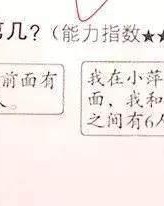 几？（能力指数★★
前面有
人。
我在小萍
面，我和
之间有6人